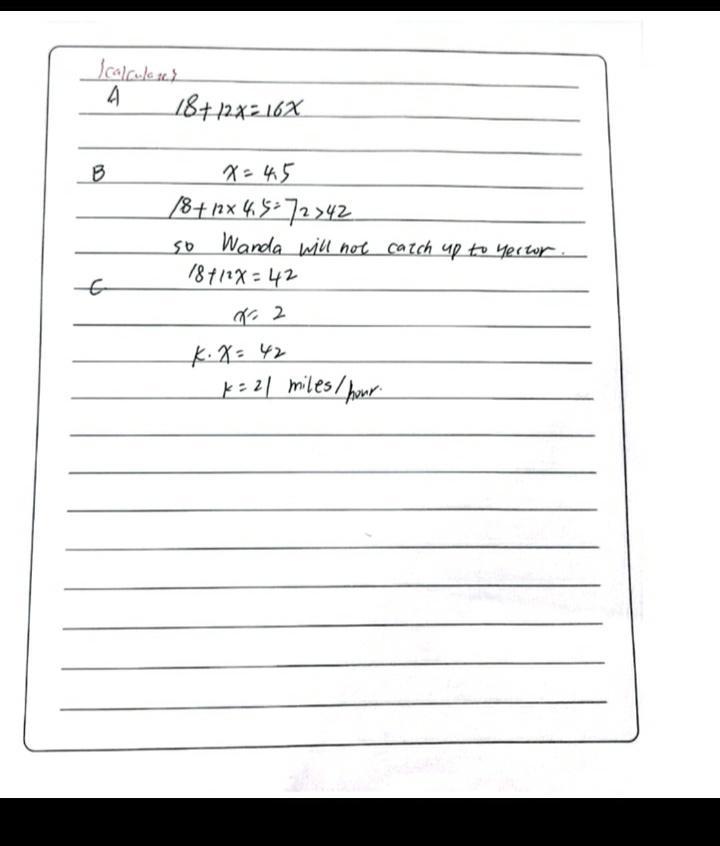 A 18+12x=16x
B x=4.5
18+12×4.5=72>42
so Wanda will not catch up to Yector.
C 18+12x=42
x=2
k·x=42
k=21 miles/hour.